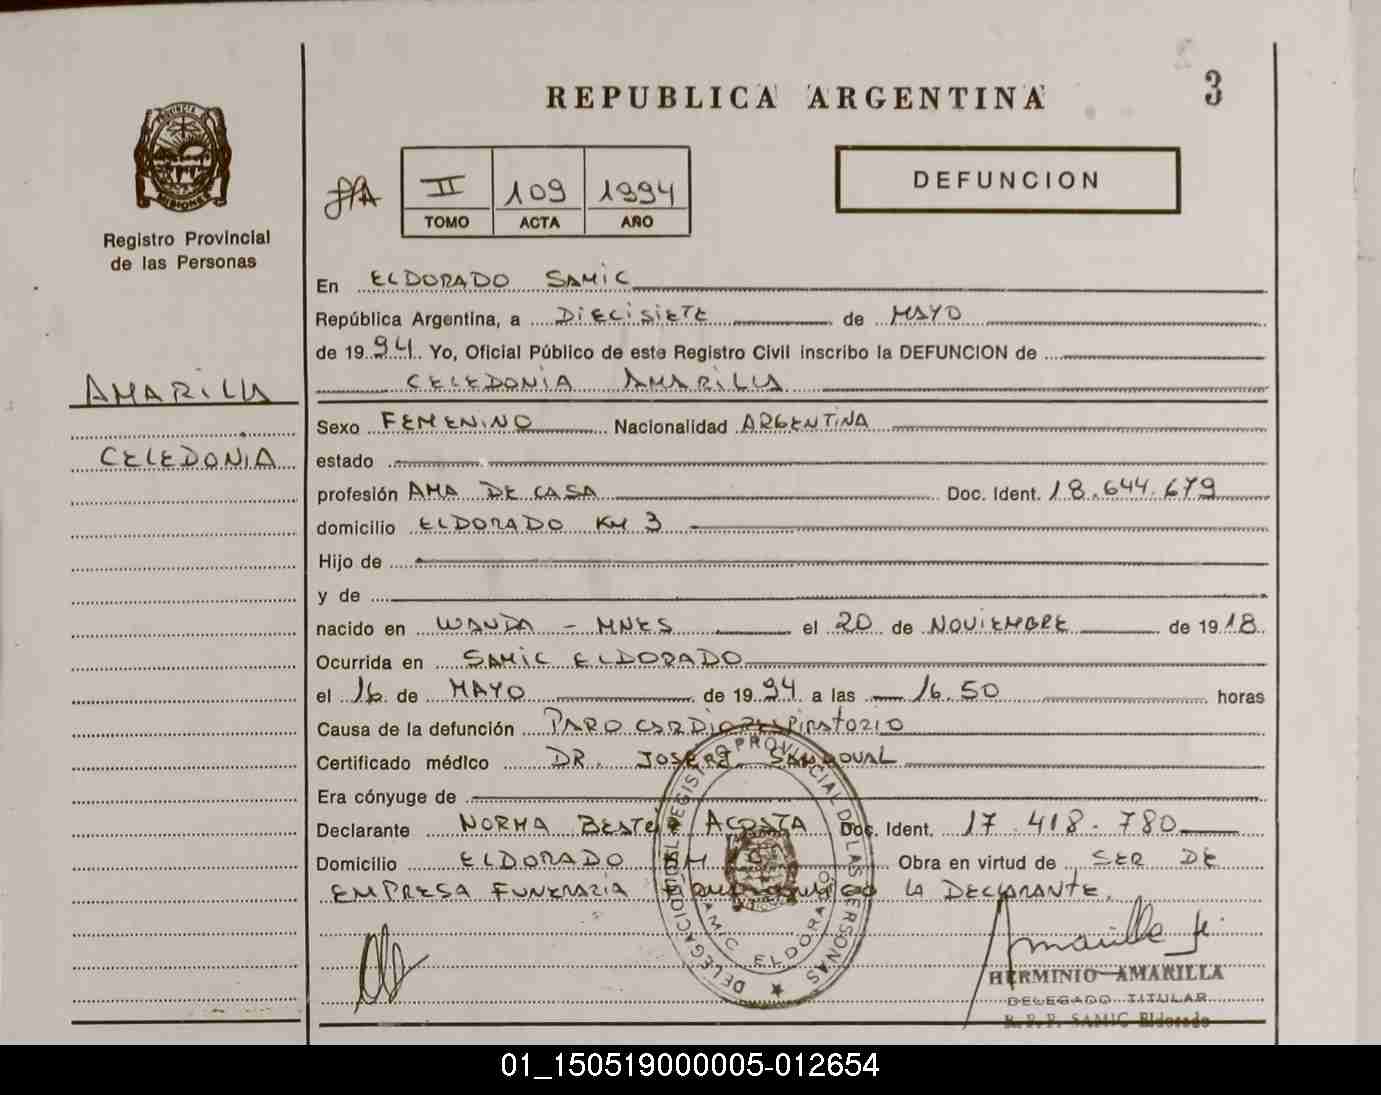 REPUBLICA ARGENTINA
3
PROVINCIA DE
MISIONES
Registro Provincial
de las Personas
II 109 1994
TOMO ACTA AÑO
DEFUNCION
AMARILLA
CELEDONIA
En ELDORADO SAMIC
República Argentina, a DIECISIETE de MAYO
de 1994. Yo, Oficial Público de este Registro Civil inscribo la DEFUNCION de
CELEDONIA AMARILLA
Sexo FEMENINO Nacionalidad ARGENTINA
estado
profesión AMA DE CASA Doc. Ident. 18.644.679
domicilio ELDORADO KM 3
Hijo de
y de
nacido en WANDA - MNES el 20 de NOVIEMBRE de 1918
Ocurrida en SAMIC ELDORADO
el 16 de MAYO de 1994 a las 16.50 horas
Causa de la defunción PARO CARDIORESPIRATORIO
Certificado médico DR. JOSE SANDOVAL
Era cónyuge de
Declarante NORMA ACOSTA Doc. Ident. 17.418.780
Domicilio ELDORADO KM Obra en virtud de SER DE
EMPRESA FUNERARIA LA DECLARANTE.
DELEGACION DEL REGISTRO PROVINCIAL DE LAS PERSONAS
SAMIC ELDORADO
HERMINIO AMARILLA
DELEGADO TITULAR
R.P.P. SAMIC Eldorado
01_150519000005-012654